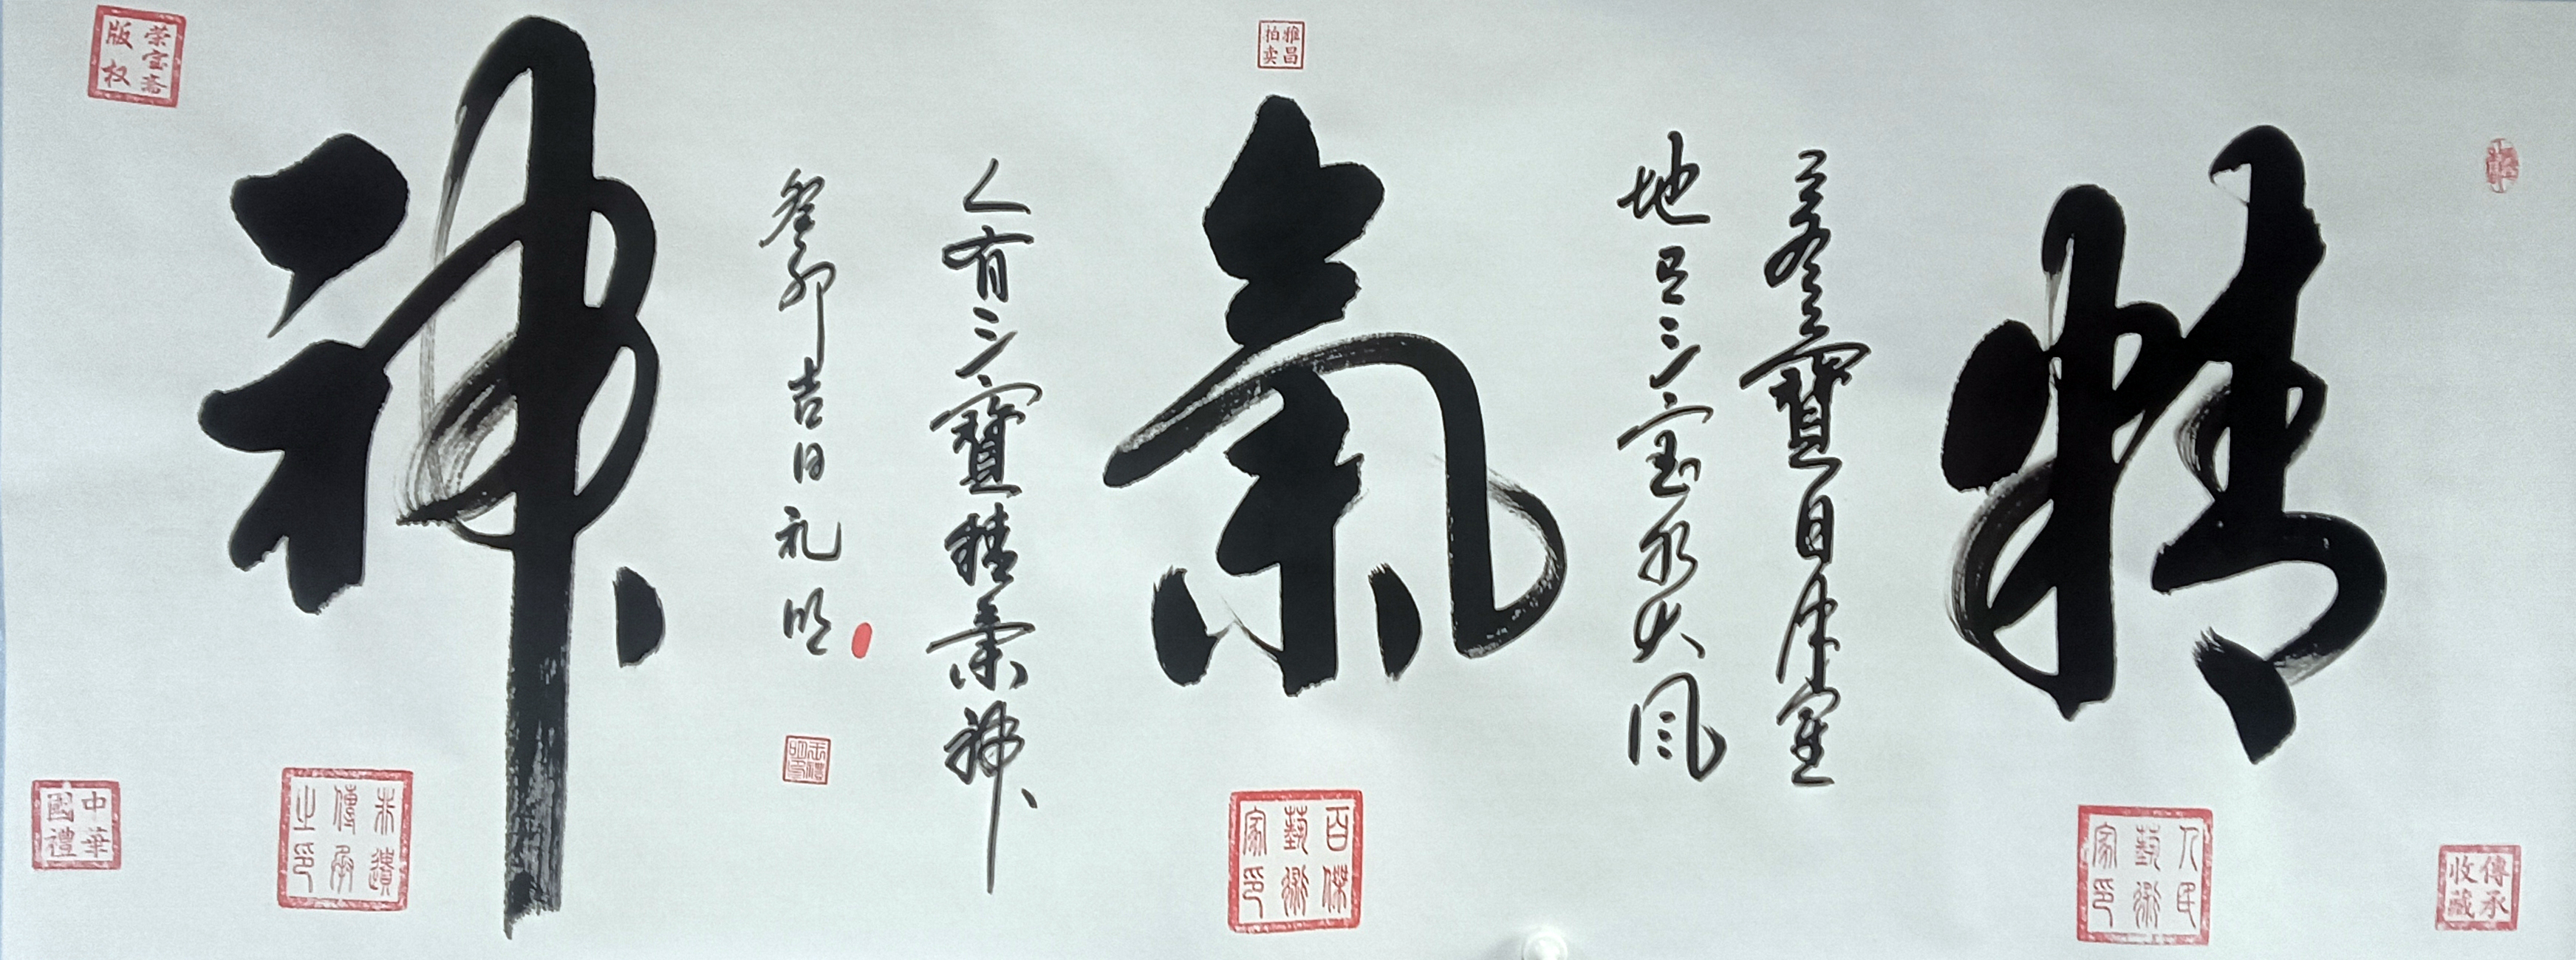 精
天有三寶日月星
地有三宝水火风
氣
人有三寶精氣神
癸卯吉日礼明
神
雅昌
拍卖
荣宝斋
版权
中華
國禮
非遗
傳承
之印
百傑
藝術
家印
人民
藝術
家印
傳承
收藏